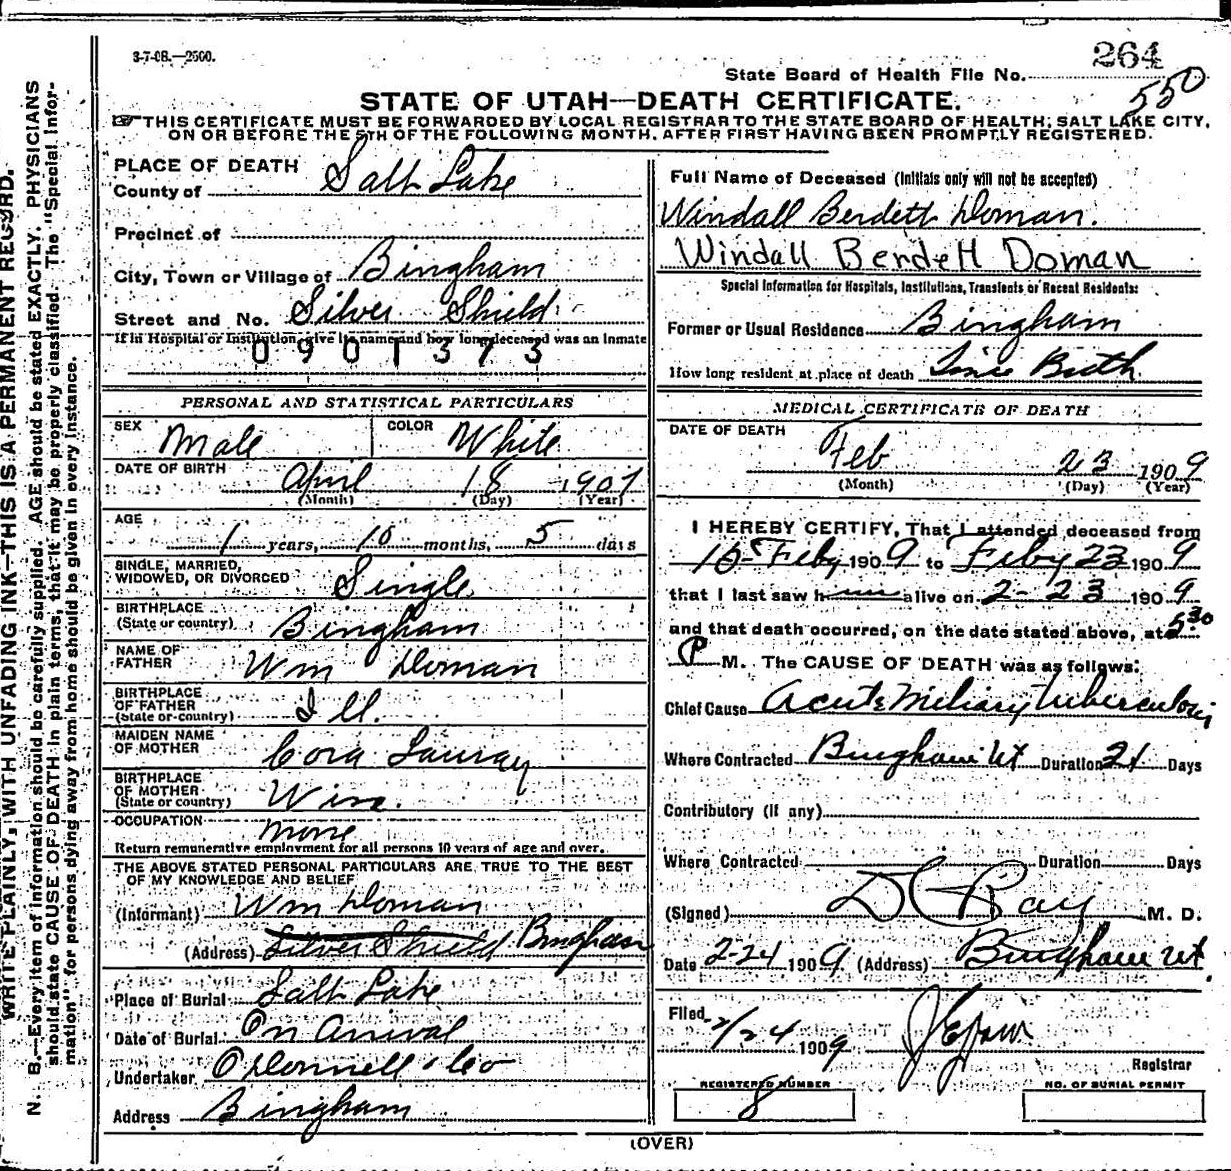 3-7-08.—2500.
264
State Board of Health File No.
550
STATE OF UTAH—DEATH CERTIFICATE.
☞ THIS CERTIFICATE MUST BE FORWARDED BY LOCAL REGISTRAR TO THE STATE BOARD OF HEALTH, SALT LAKE CITY,
ON OR BEFORE THE 5TH OF THE FOLLOWING MONTH, AFTER FIRST HAVING BEEN PROMPTLY REGISTERED.
WRITE PLAINLY, WITH UNFADING INK—THIS IS A PERMANENT RECORD.
N. B.—Every item of information should be carefully supplied. AGE should be stated EXACTLY. PHYSICIANS
should state CAUSE OF DEATH in plain terms, that it may be properly classified. The "Special Infor-
mation" for persons dying away from home should be given in every instance.
PLACE OF DEATH
County of Salt Lake
Precinct of
City, Town or Village of Bingham
Street and No. Silver Shield
If in Hospital or Institution, give its name and how long deceased was an Inmate
0901373
PERSONAL AND STATISTICAL PARTICULARS
SEX Male COLOR White
DATE OF BIRTH April 18 1907
(Month) (Day) (Year)
AGE 1 years, 10 months, 5 days
SINGLE, MARRIED,
WIDOWED, OR DIVORCED Single
BIRTHPLACE
(State or country) Bingham
NAME OF
FATHER Wm Doman
BIRTHPLACE
OF FATHER
(State or country) Ill.
MAIDEN NAME
OF MOTHER Cora
BIRTHPLACE
OF MOTHER
(State or country) Wis.
OCCUPATION None
Return remunerative employment for all persons 10 years of age and over.
THE ABOVE STATED PERSONAL PARTICULARS ARE TRUE TO THE BEST
OF MY KNOWLEDGE AND BELIEF
(Informant) Wm Doman
(Address) Silver Shield Bingham
Place of Burial Salt Lake
Date of Burial On Arrival
Undertaker O'Donnell & Co
Address Bingham
Full Name of Deceased (Initials only will not be accepted)
Windall Berdett Doman.
Windall Berdett Doman
Special Information for Hospitals, Institutions, Transients or Recent Residents:
Former or Usual Residence Bingham
How long resident at place of death Since Birth
MEDICAL CERTIFICATE OF DEATH
DATE OF DEATH
Feb 23 1909
(Month) (Day) (Year)
I HEREBY CERTIFY, That I attended deceased from
Feby 1909 to Feby 23 1909
that I last saw h alive on 2-23 1909
and that death occurred, on the date stated above, at 5:30
P M. The CAUSE OF DEATH was as follows:
Chief Cause Acute Miliary Tuberculosis
Where Contracted Bingham Ut Duration 21 Days
Contributory (if any)
Where Contracted Duration Days
(Signed) D C Ray M. D.
Date 2-24 1909 (Address) Bingham Ut.
Filed 2/24 1909
Registrar
REGISTERED NUMBER
8
NO. OF BURIAL PERMIT
(OVER)